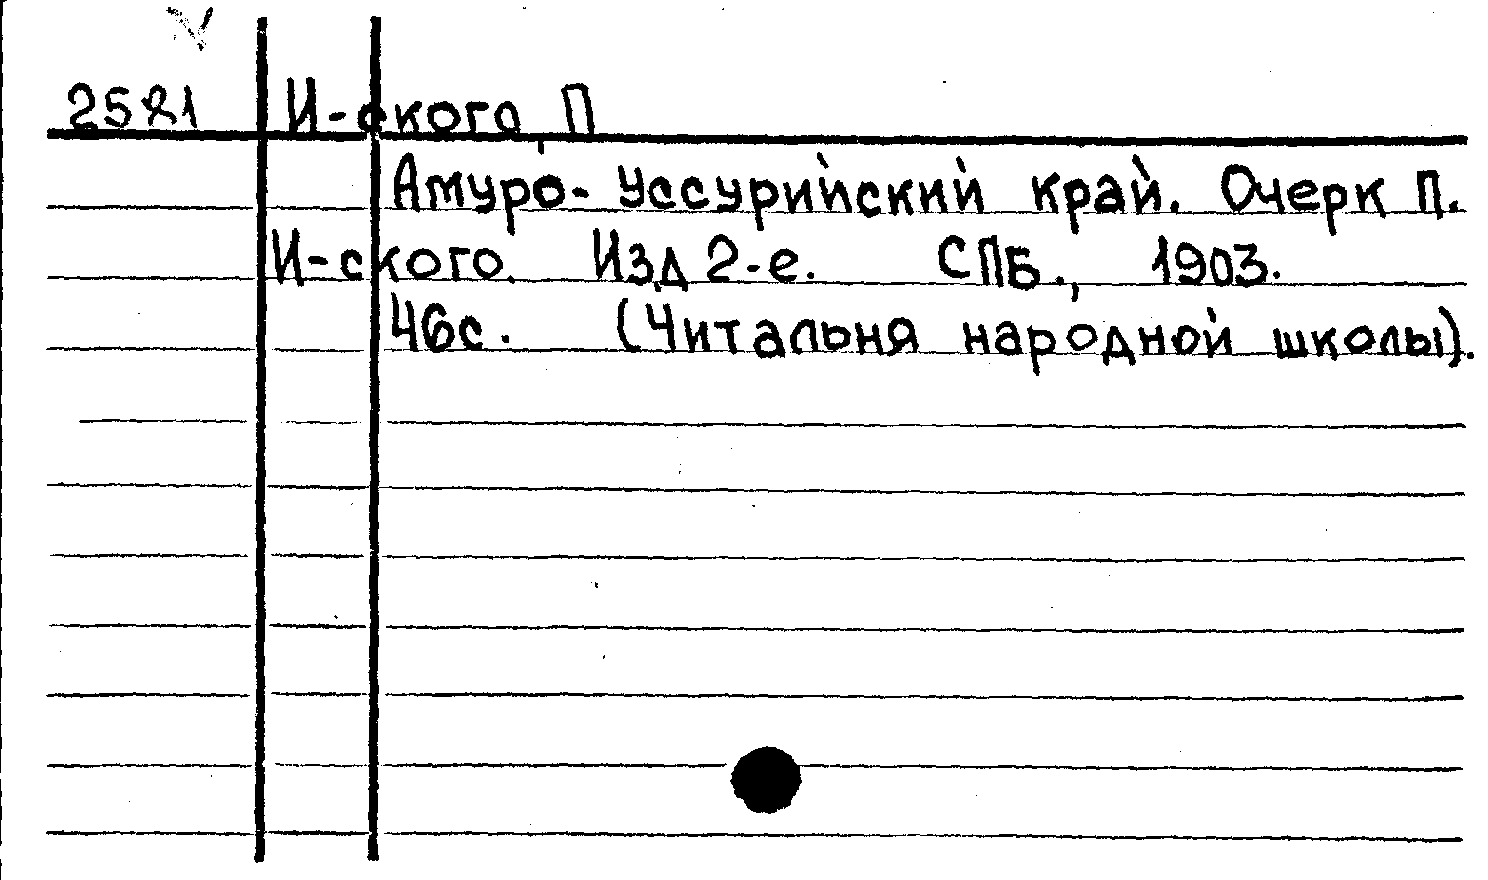 2521 И-ского, П
Амуро-Уссурийский край. Очерк П.
И-ского. Изд 2-е. СПБ., 1903.
46с. (Читальня народной школы).